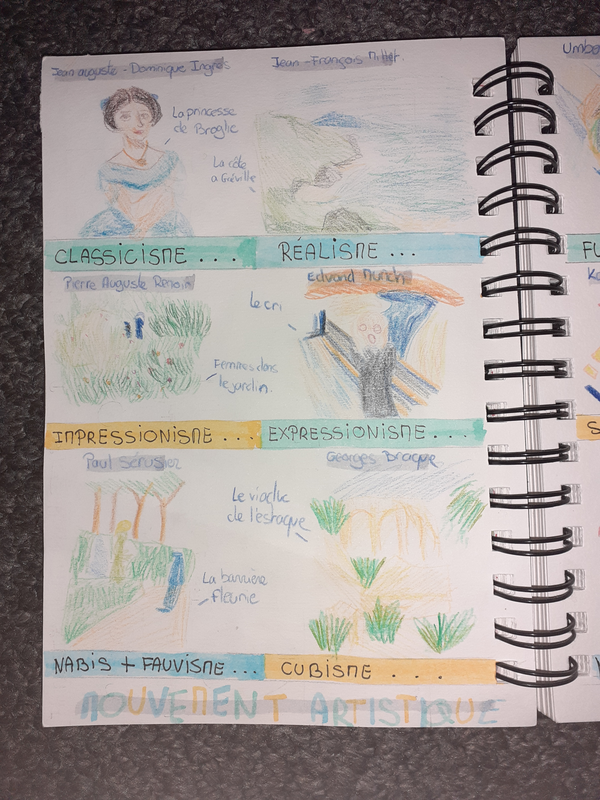 Jean auguste - Dominique Ingres
Jean-François Millet.
La princesse
de Broglie
La côte
a Gréville
CLASSICISME ...
RÉALISME ...
Pierre Auguste Renoir
Edvard Munch
Le cri
Femmes dans
le jardin.
IMPRESSIONISME ...
EXPRESSIONISME ...
Paul Sérusier
Georges Bracque
Le viaduc
de l'estaque
La barrière
fleurie
NABIS + FAUVISME ...
CUBISME ...
MOUVEMENT ARTISTIQUE
Umbe
FU